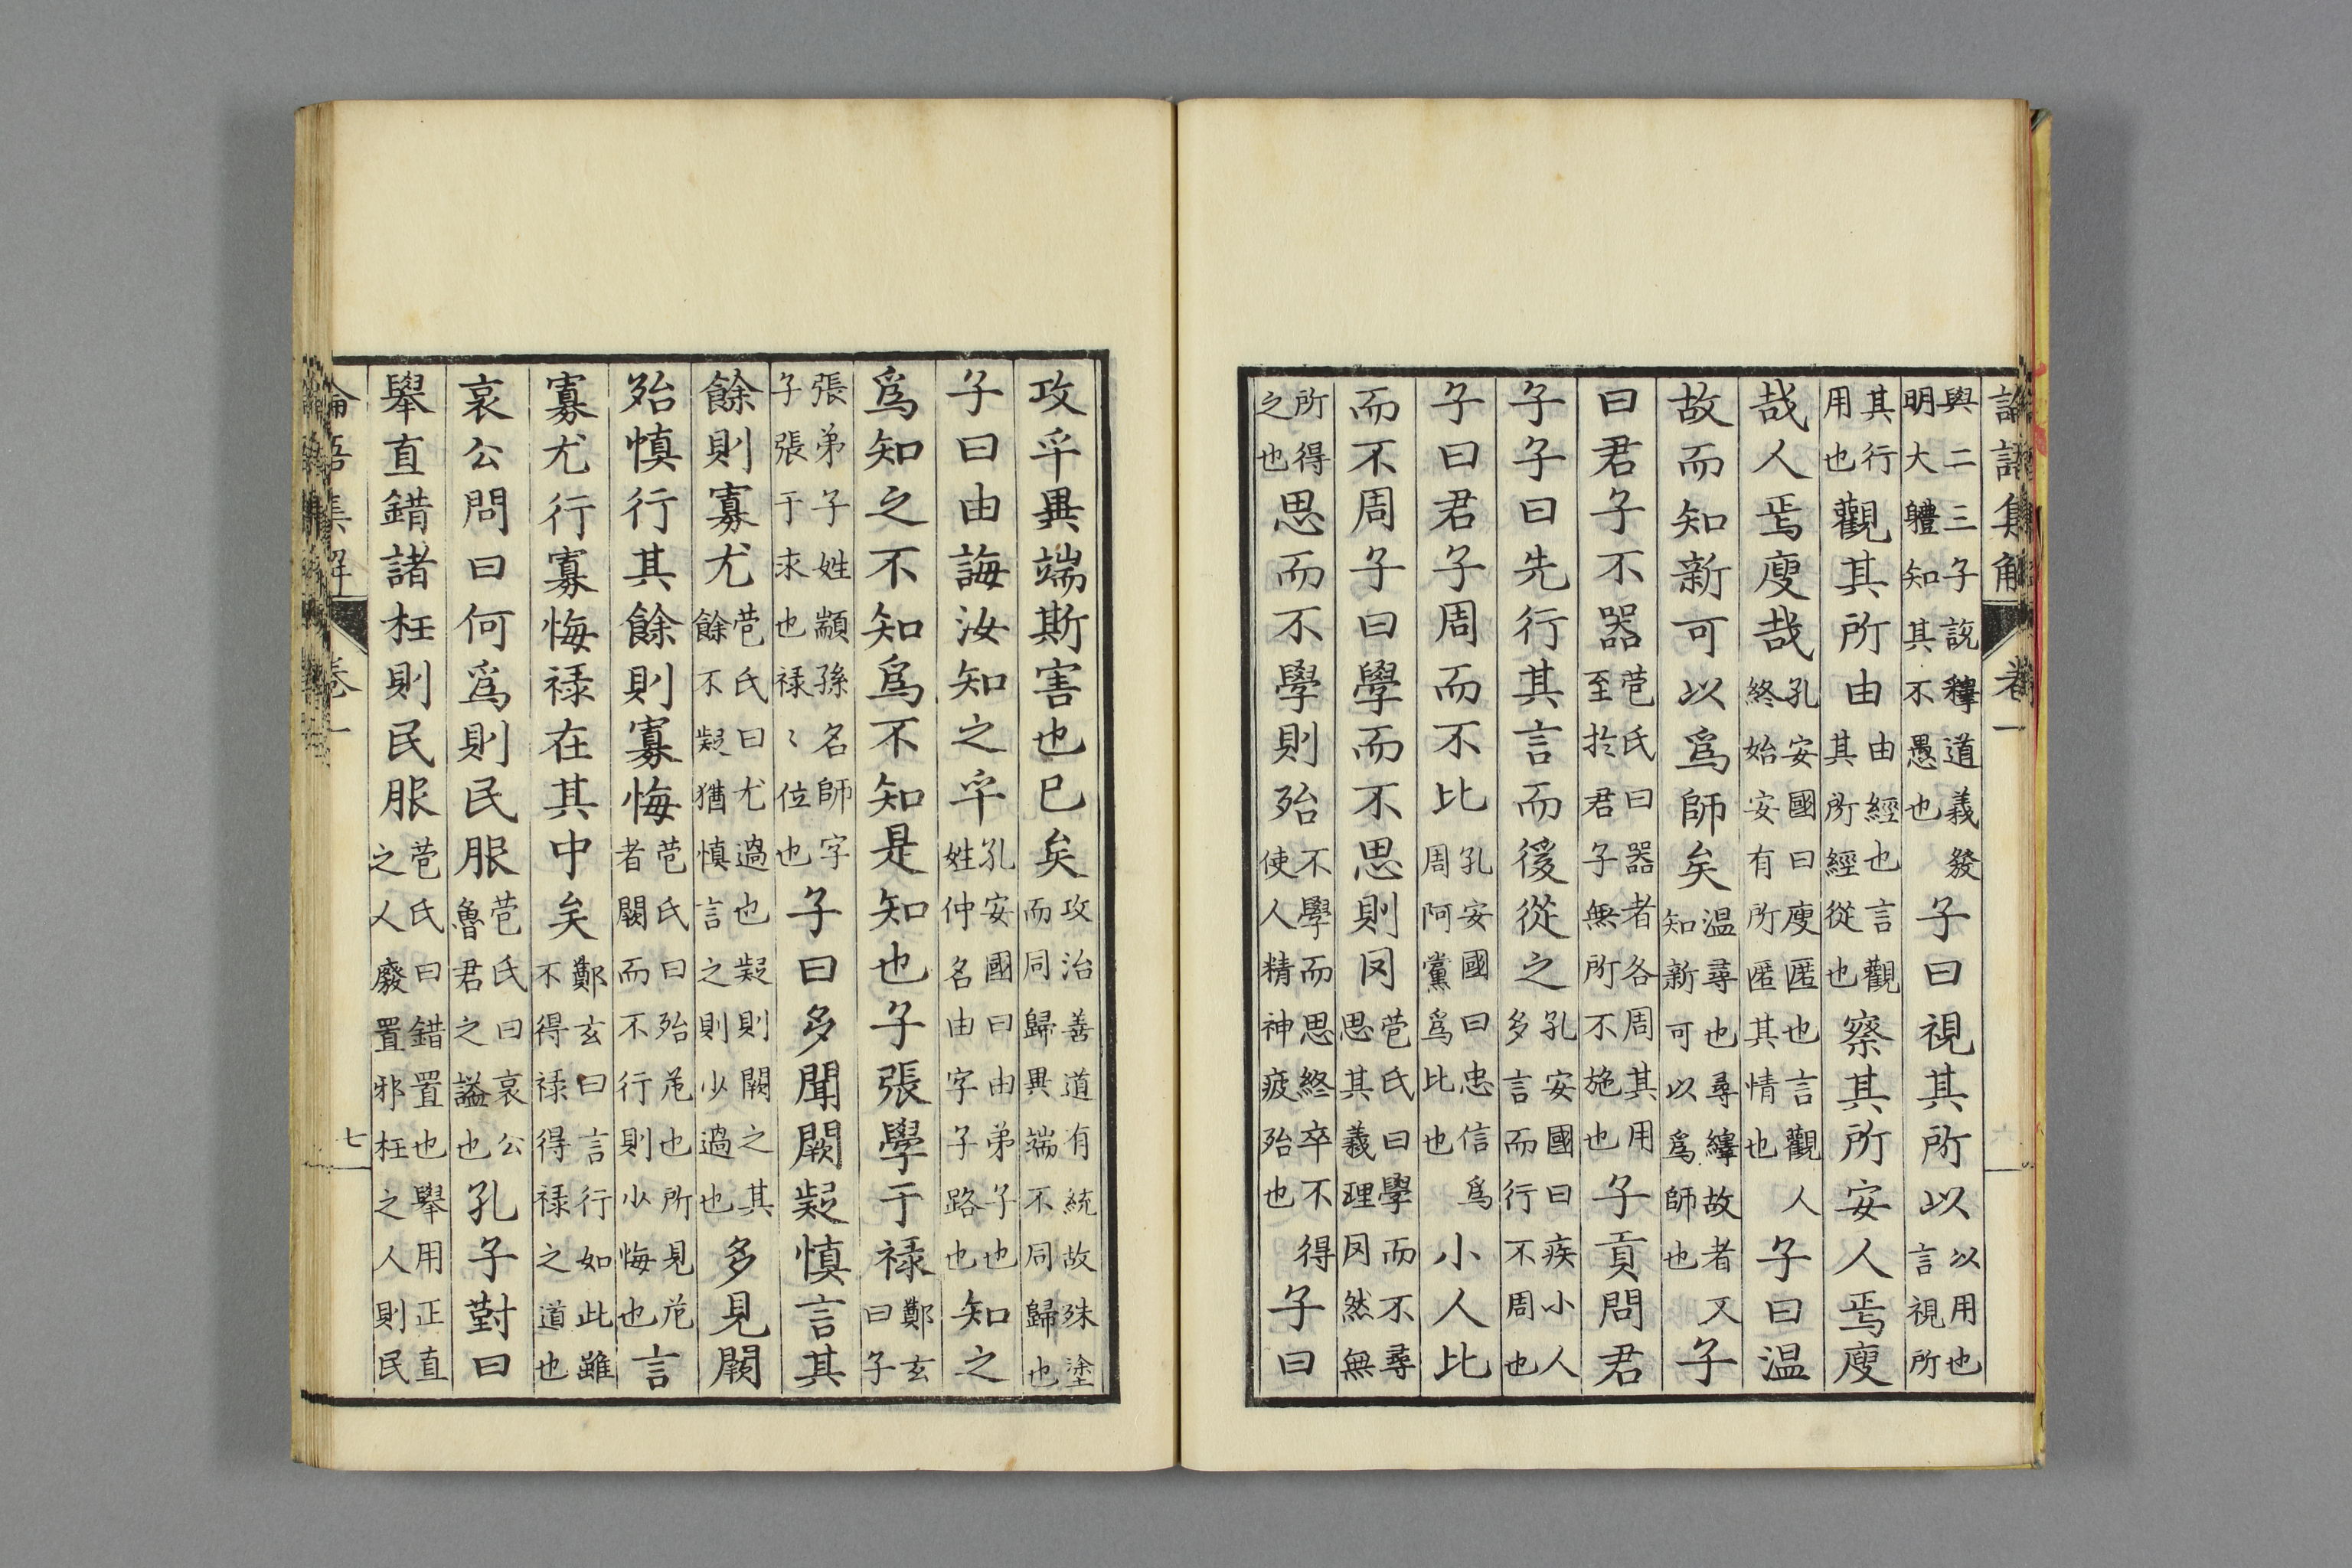 論語集解 卷一
與二三子說釋道義發明大軆知其不愚也子曰視其所以以用也言視所
其行用也觀其所由由經也言觀其所經從也察其所安人焉廋
哉人焉廋哉孔安國曰廋匿也言觀人終始安有所匿其情也子曰温
故而知新可以爲師矣温尋也尋繹故者又知新可以爲師也子
曰君子不器苞氏曰器者各周其用至於君子無所不施也子貢問君
子子曰先行其言而後從之孔安國曰疾小人多言而行不周也
子曰君子周而不比孔安國曰忠信爲周阿黨爲比也小人比
而不周子曰學而不思則罔苞氏曰學而不尋思其義理罔然無
所得之也思而不學則殆不學而思終卒不得使人精神疲殆也子曰
攻乎異端斯害也已矣攻治善道有統故殊塗而同歸異端不同歸也
子曰由誨汝知之乎孔安國曰由弟子也姓仲名由字子路也知之
爲知之不知爲不知是知也子張學于禄鄭玄曰子
張弟子姓顓孫名師字子張于求也禄〻位也子曰多聞闕疑慎言其
餘則寡尤苞氏曰尤過也疑則闕之其餘不疑猶慎言之則少過也多見闕
殆慎行其餘則寡悔苞氏曰殆危也所見危者闕而不行則少悔也言
寡尤行寡悔禄在其中矣鄭玄曰言行如此雖不得禄得禄之道也
哀公問曰何爲則民服苞氏曰哀公魯君之謚也孔子對曰
舉直錯諸枉則民服苞氏曰錯置也舉用正直之人廢置邪枉之人則民
論語集解 卷一 七